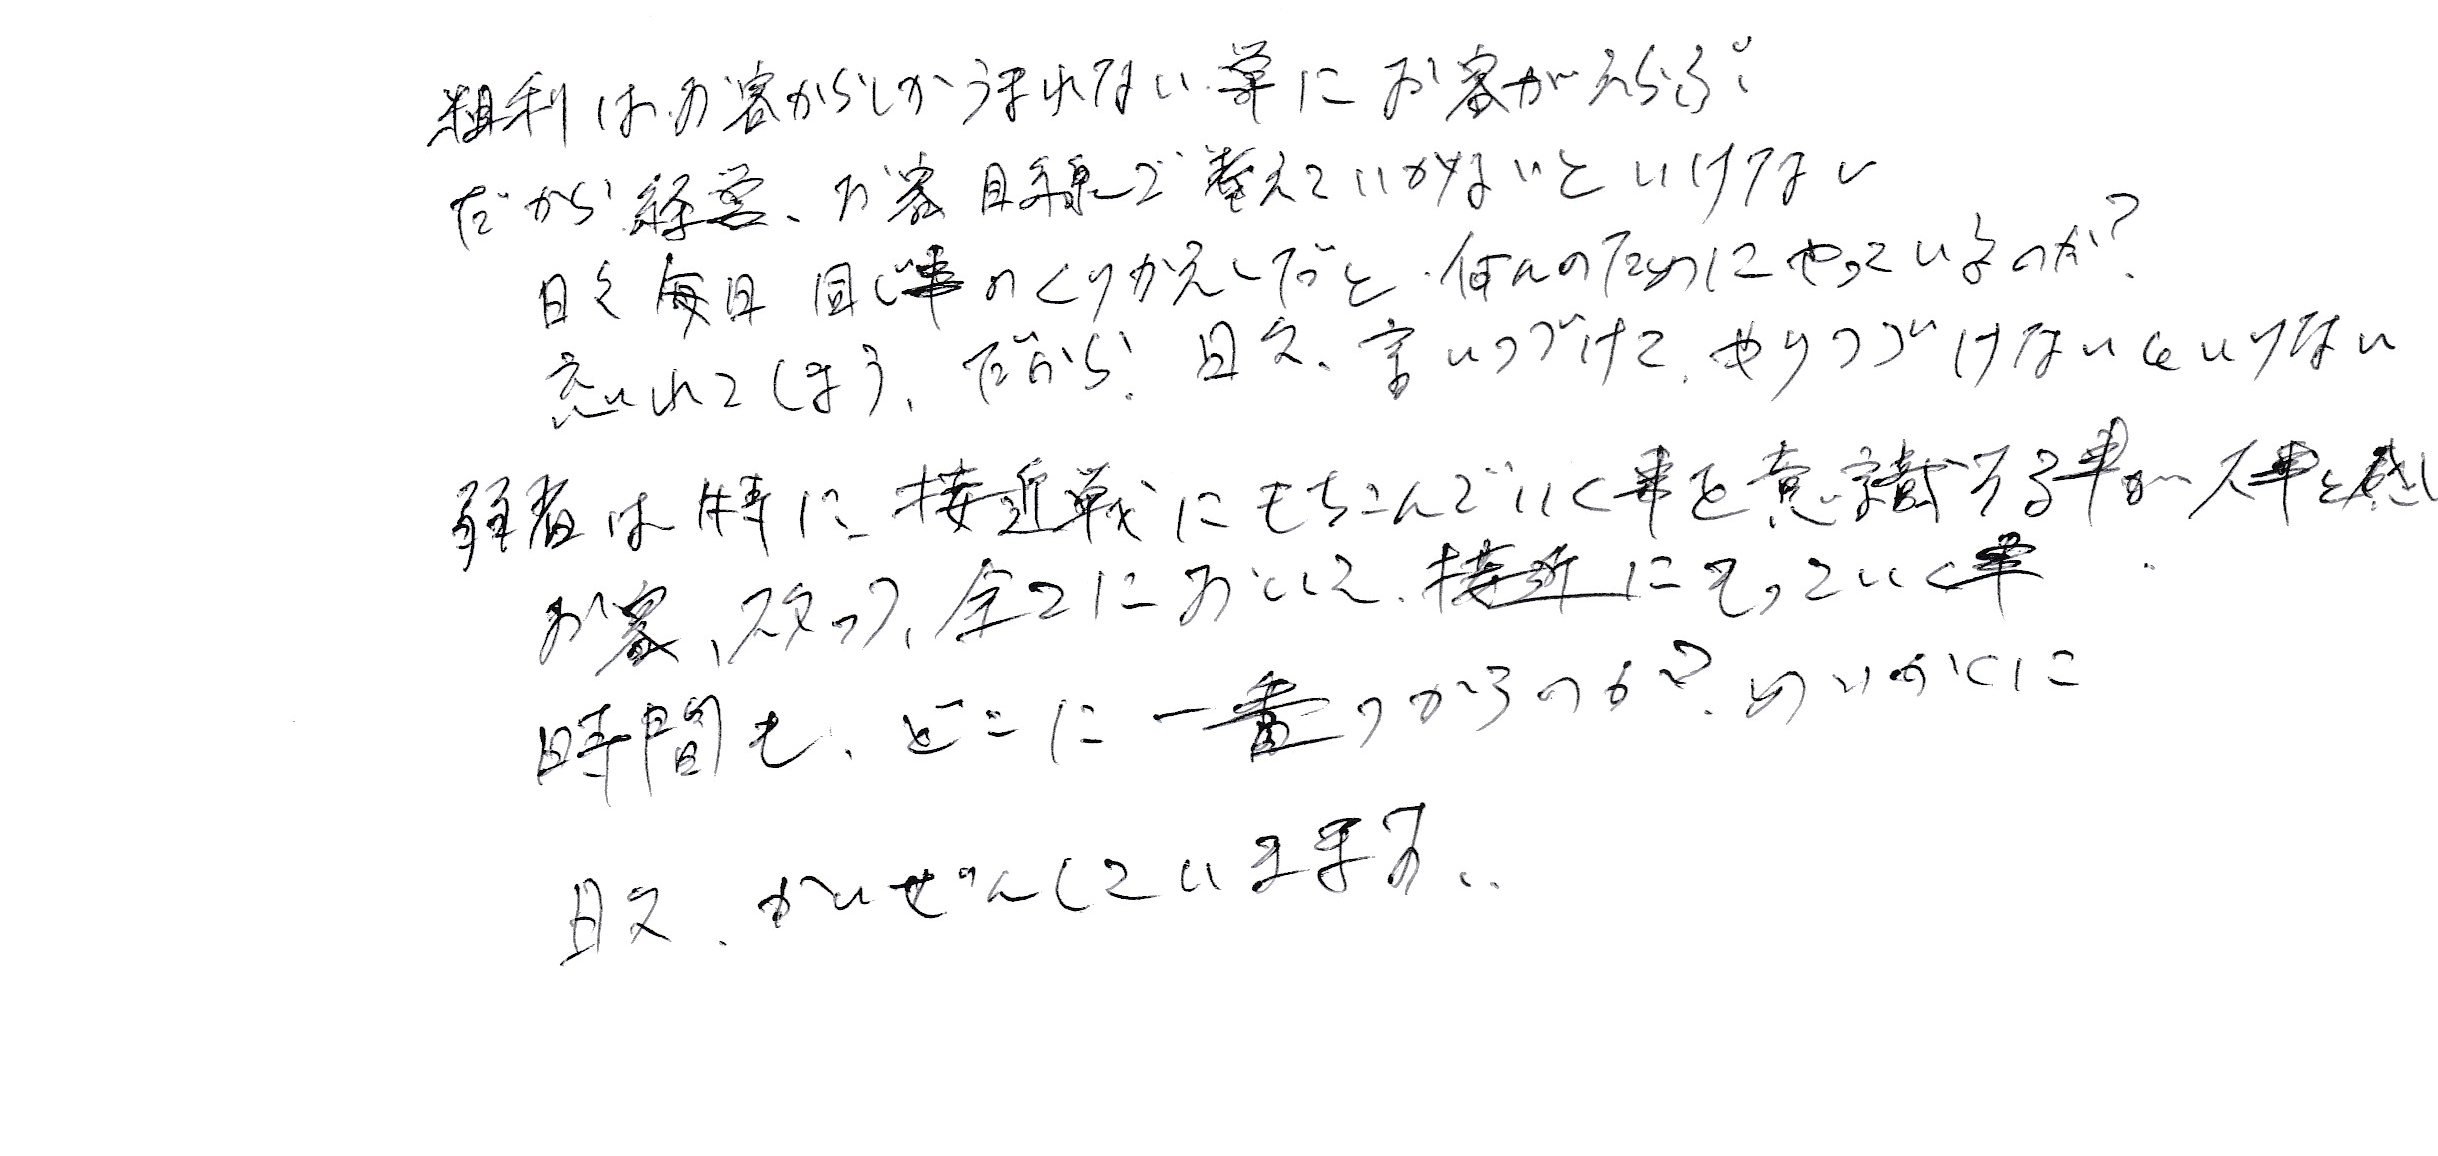 粗利はお客からしかうまれない 単にお客がえらぶ
だから経営、お客目線で考えていかないといけない
日々毎日同じ事のくりかえしだと、何んのためにやっているのか?
忘れてしまう、だから、日々、言いつづけて、やりつづけないといけない
弱者は特に、接近戦にもちこんでいく事を意識する事が大事と感し
お客、スタッフ、全てにおいて、接近にもっていく事
時間も、どこに一番つかうのか?めいかくに
日々、かいぜんしていきます。